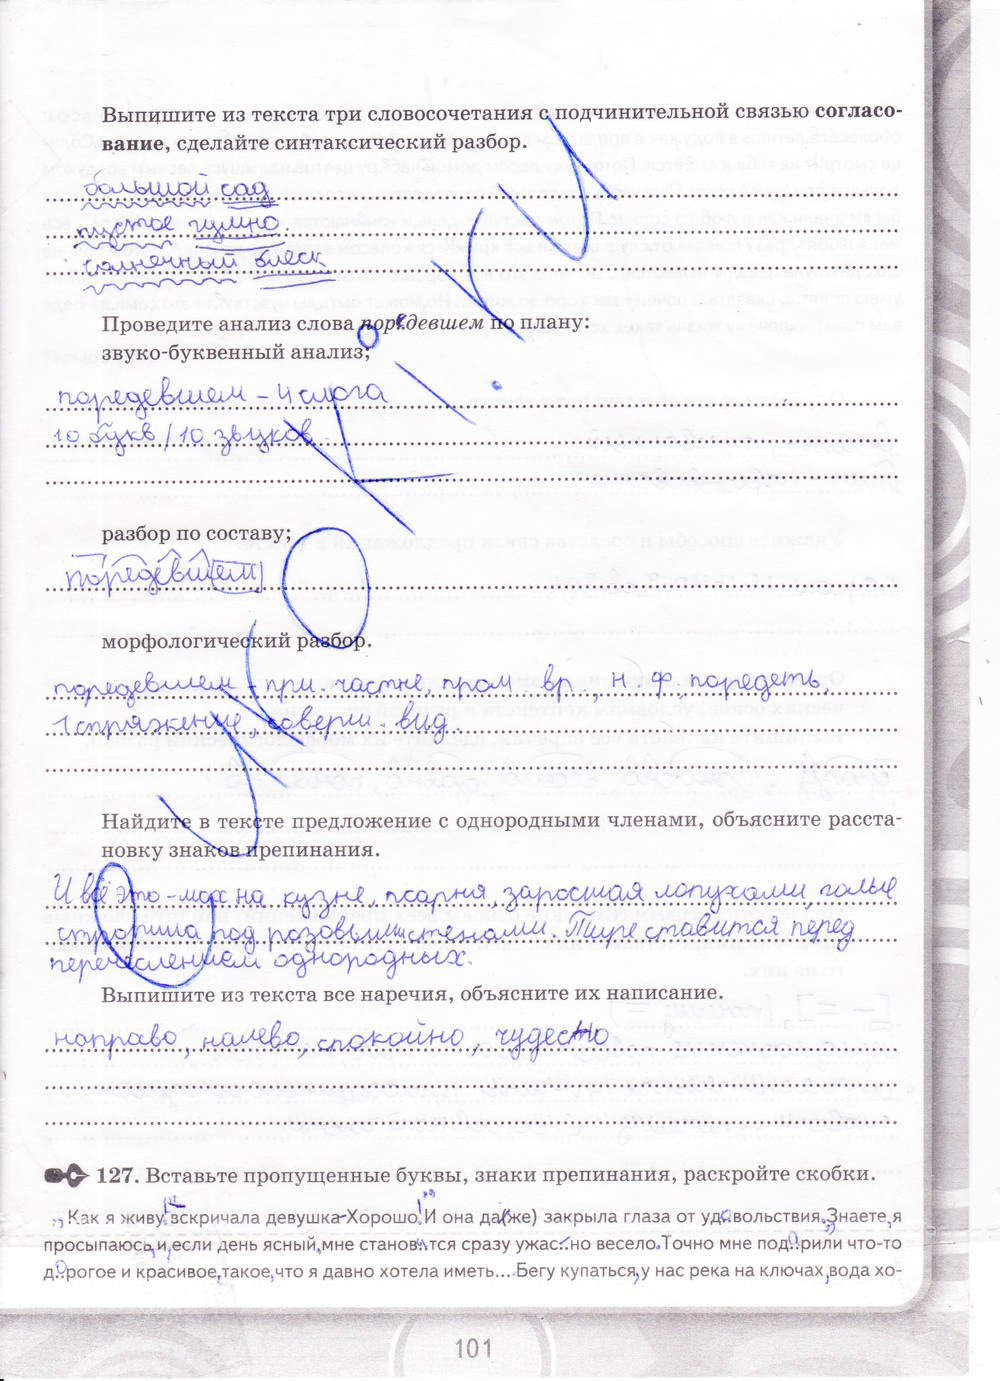 Выпишите из текста три словосочетания с подчинительной связью согласо-
вание, сделайте синтаксический разбор.
большой сад
пустое гумно.
солнечный блеск
Проведите анализ слова поредевшем по плану:
звуко-буквенный анализ;
поредевшем – 4 слога
10 букв / 10 звуков
разбор по составу;
поредевшем
морфологический разбор.
поредевшем – при. частие, прош вр., н. ф, поредеть,
1 спряжение, соверш. вид.
Найдите в тексте предложение с однородными членами, объясните расста-
новку знаков препинания.
И всё это – мох на кузне, псарня, заросшая лопухами голые
стропила под розовыми стенами. Тире ставится перед
перечислением однородных.
Выпишите из текста все наречия, объясните их написание.
направо, налево, спокойно, чудестно
127. Вставьте пропущенные буквы, знаки препинания, раскройте скобки.
„Как я живу!" – вскричала девушка – Хорошо!" И она да(же) закрыла глаза от удовольствия. „Знаете, я
просыпаюсь, и, если день ясный, мне становится сразу ужас..но весело. Точно мне подарили что-то
дорогое и красивое, такое, что я давно хотела иметь... Бегу купаться, у нас река на ключах, вода хо-
101
УROKI.RU